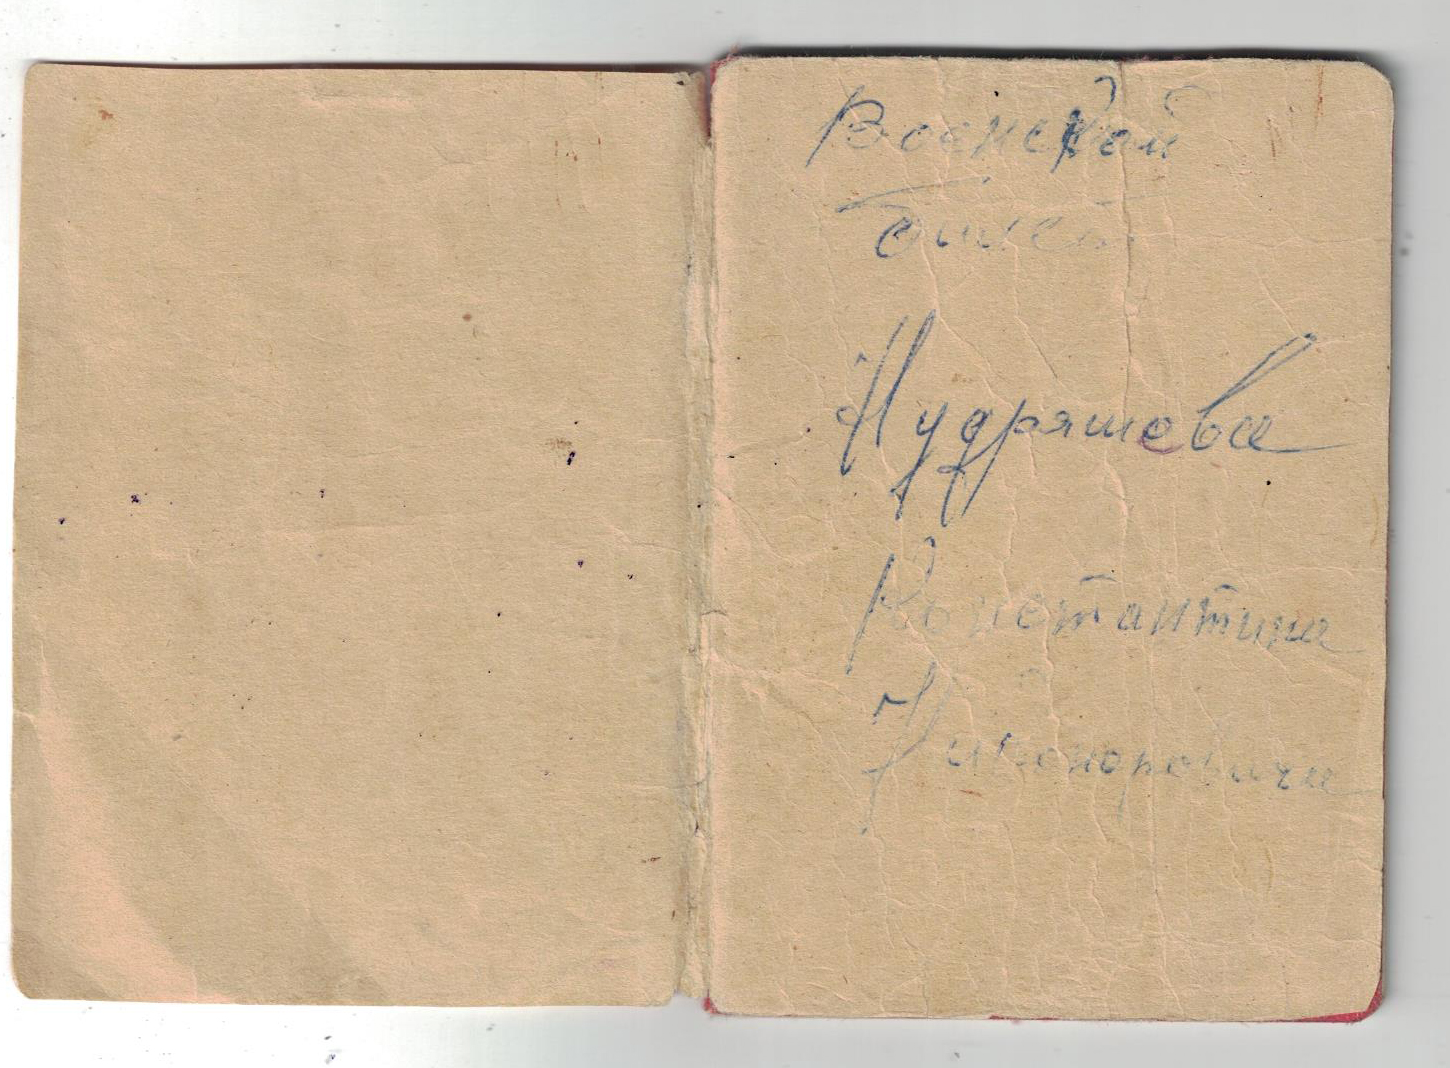 Военский
билет
Кудряшева
Константина
Никоноровича